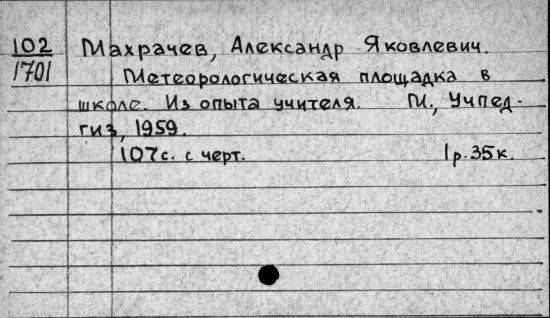 102 Махрачев, Александр Яковлевич.
1701 Метеорологическая площадка в
школе. Из опыта учителя. М., Учпед-
гиз, 1959.
107с. с черт. 1р.35к.